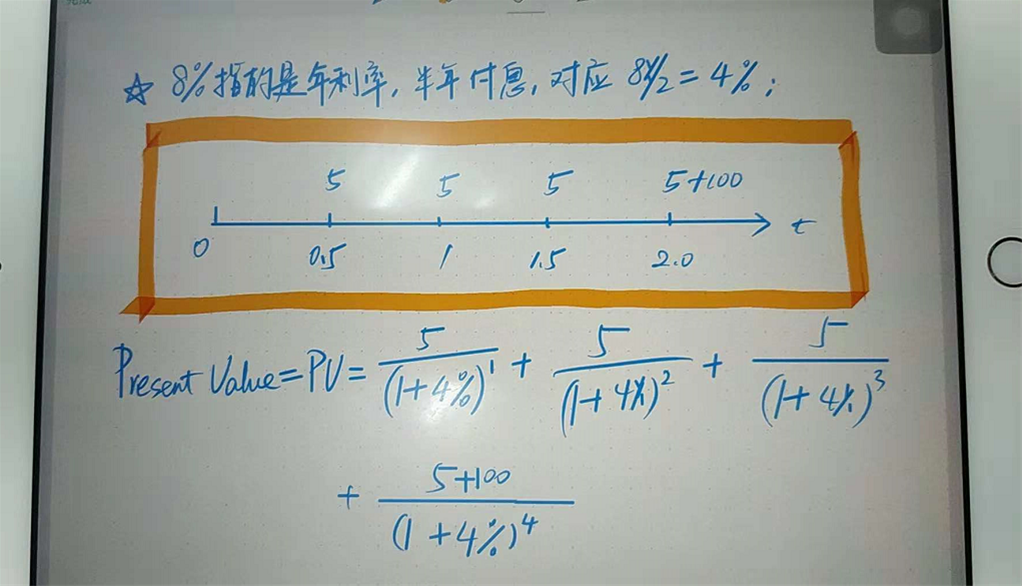 ☆ 8%指的是年利率，半年付息，对应 8%/2 = 4%；
5 5 5 5+100
0 0.5 1 1.5 2.0 t
Present Value = PV = 5/(1+4%)^1 + 5/(1+4%)^2 + 5/(1+4%)^3
+ (5+100)/(1+4%)^4